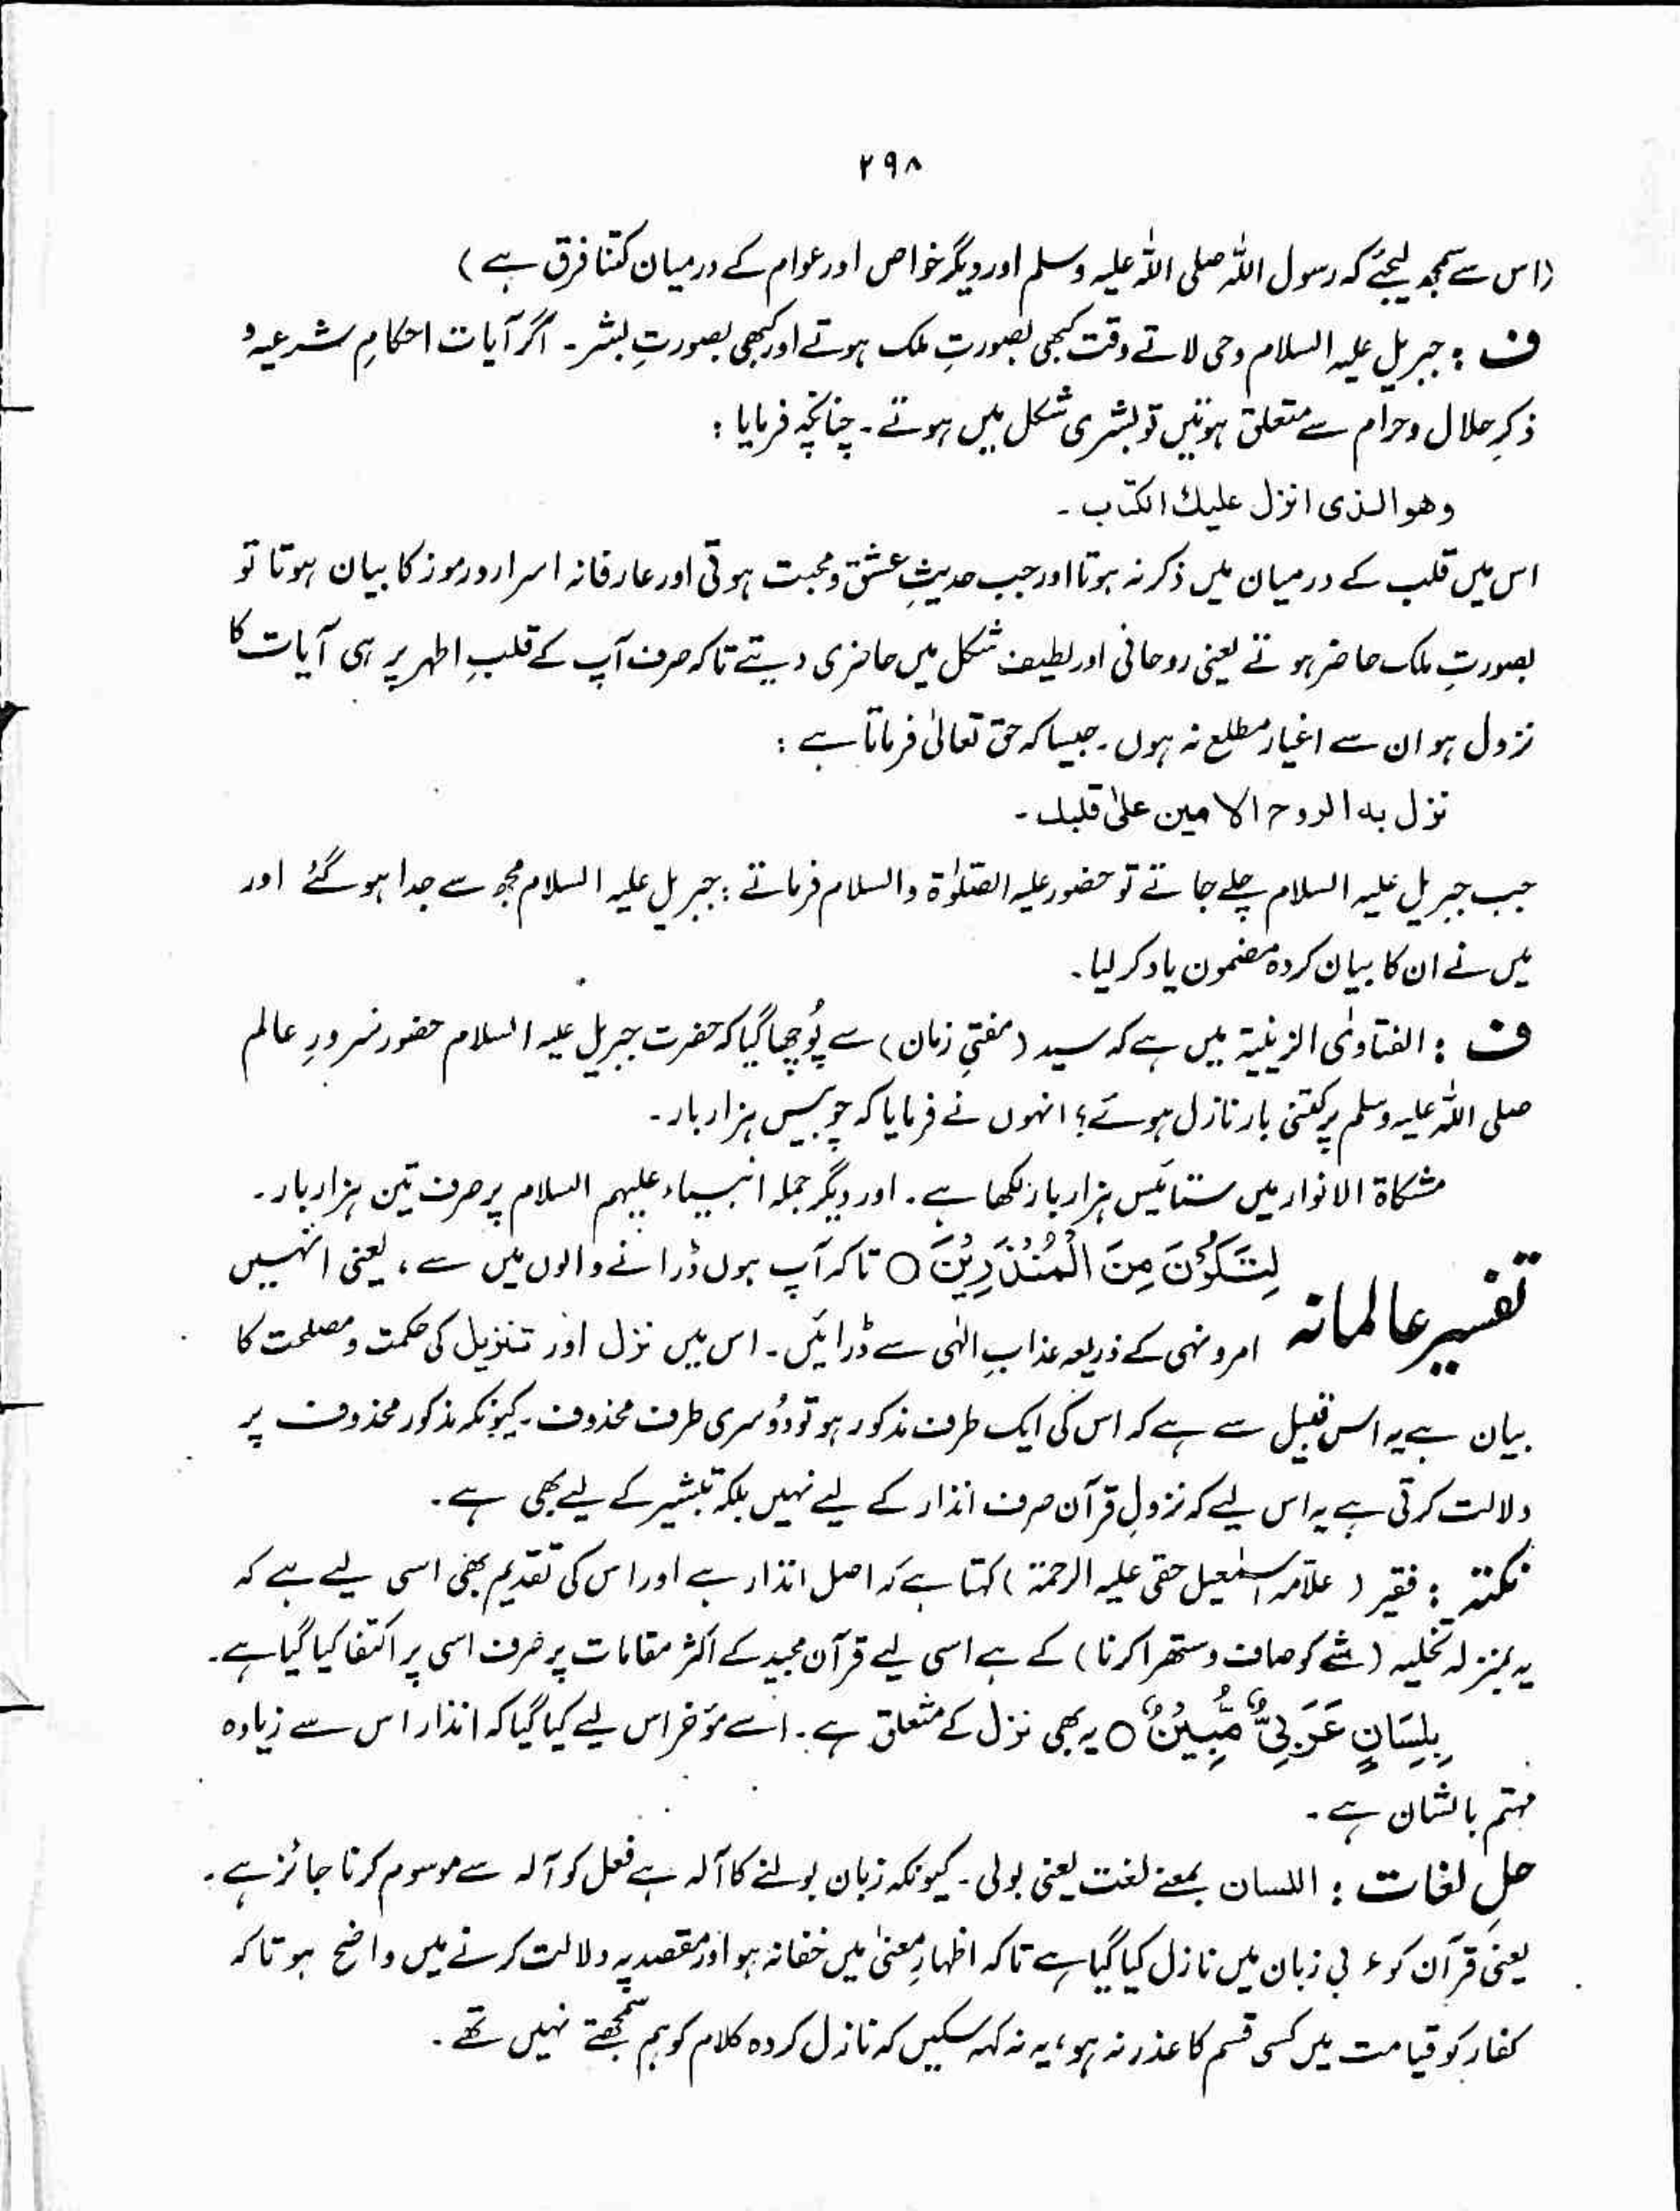 ۲۹۸
(اس سے سمجھ لیجئے کہ رسول اللہ صلی اللہ علیہ وسلم اور دیگر خواص اور عوام کے درمیان کتنا فرق ہے)
ف : جبریل علیہ السلام وحی لاتے وقت کبھی بصورتِ ملک ہوتے اور کبھی بصورتِ بشر۔ اگر آیات احکامِ شرعیہ و
ذکرِ حلال و حرام سے متعلق ہوتیں تو بشری شکل میں ہوتے۔ چنانچہ فرمایا :
وھو الذی انزل علیك الکتاب۔
اس میں قلب کے درمیان میں ذکر نہ ہوتا اور جب حدیثِ عشق و محبت ہوتی اور عارفانہ اسرار و رموز کا بیان ہوتا تو
بصورتِ ملک حاضر ہوتے یعنی روحانی اور لطیف شکل میں حاضری دیتے تاکہ صرف آپ کے قلبِ اطہر پر ہی آیات کا
نزول ہو ان سے اغیار مطلع نہ ہوں۔ جیسا کہ حق تعالیٰ فرماتا ہے :
نزل به الروح الامین علیٰ قلبك۔
جب جبریل علیہ السلام چلے جاتے تو حضور علیہ الصلوٰۃ والسلام فرماتے : جبریل علیہ السلام مجھ سے جدا ہو گئے اور
میں نے ان کا بیان کردہ مضمون یاد کر لیا۔
ف : الفتاویٰ الزینیۃ میں ہے کہ سید (مفتیِ زمان) سے پُوچھا گیا کہ حضرت جبریل علیہ السلام حضور سرورِ عالم
صلی اللہ علیہ وسلم پر کتنی بار نازل ہوئے؟ انہوں نے فرمایا کہ چوبیس ہزار بار۔
مشکاۃ الانوار میں ستائیس ہزار بار لکھا ہے۔ اور دیگر جملہ انبیاء علیہم السلام پر صرف تین ہزار بار۔
تفسیر عالمانہ لِتَكُوْنَ مِنَ الْمُنْذِرِيْنَ ○ تاکہ آپ ہوں ڈرانے والوں میں سے، یعنی انہیں
امر و نہی کے ذریعہ عذابِ الٰہی سے ڈرائیں۔ اس میں نزل اور تنزیل کی حکمت و مصلحت کا
بیان ہے یہ اس قبیل سے ہے کہ اس کی ایک طرف مذکور ہو تو دُوسری طرف محذوف۔ کیونکہ مذکور محذوف پر
دلالت کرتی ہے یہ اس لیے کہ نزولِ قرآن صرف انذار کے لیے نہیں بلکہ تبشیر کے لیے بھی ہے۔
نکتہ : فقیر (علامہ اسمٰعیل حقی علیہ الرحمۃ) کہتا ہے کہ اصل انذار ہے اور اس کی تقدیم بھی اسی لیے ہے کہ
یہ بمنزلہ تخلیہ (شے کو صاف و ستھرا کرنا) کے ہے اسی لیے قرآن مجید کے اکثر مقامات پر صرف اسی پر اکتفا کیا گیا ہے۔
بِلِسَانٍ عَرَبِىٍّ مُّبِيْنٍ ○ یہ بھی نزل کے متعلق ہے۔ اسے مؤخر اس لیے کیا گیا کہ انذار اس سے زیادہ
مہتم بالشان ہے۔
حلِ لغات : اللسان بمعنے لغت یعنی بولی۔ کیونکہ زبان بولنے کا آلہ ہے فعل کو آلہ سے موسوم کرنا جائز ہے۔
یعنی قرآن کو عربی زبان میں نازل کیا گیا ہے تاکہ اظہارِ معنیٰ میں خفا نہ ہو اور مقصد پہ دلالت کرنے میں واضح ہو تاکہ
کفار کو قیامت میں کسی قسم کا عذر نہ ہو، یہ نہ کہہ سکیں کہ نازل کردہ کلام کو ہم سمجھتے نہیں تھے۔